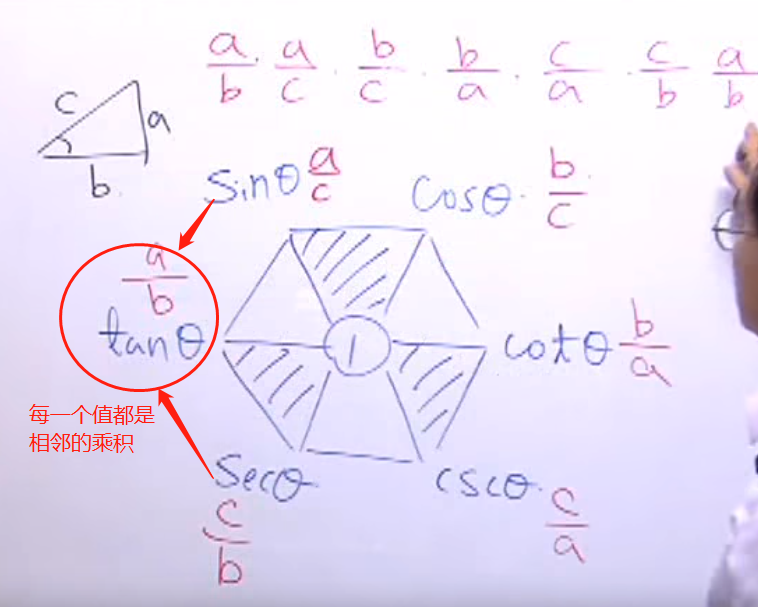 a/b · a/c · b/c · b/a · c/a · c/b a/b
c
a
b
sinθ a/c
cosθ b/c
a/b
tanθ
1
cotθ b/a
每一个值都是
相邻的乘积
secθ
c/b
cscθ
c/a